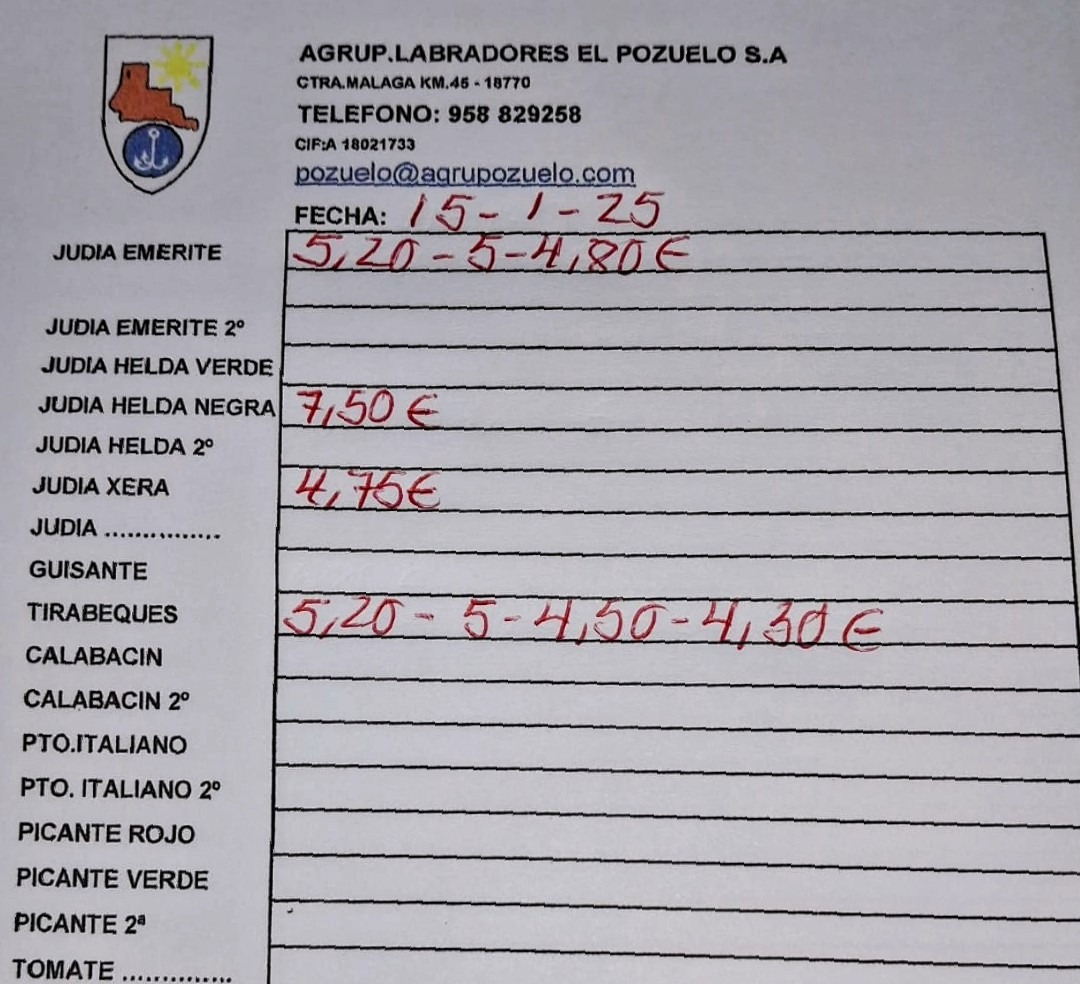 AGRUP.LABRADORES EL POZUELO S.A
CTRA.MALAGA KM.45 - 18770
TELEFONO: 958 829258
CIF:A 18021733
pozuelo@agrupozuelo.com
FECHA: 15-1-25
JUDIA EMERITE 5,20 - 5 - 4,80 €
JUDIA EMERITE 2º
JUDIA HELDA VERDE
JUDIA HELDA NEGRA 7,50 €
JUDIA HELDA 2º
JUDIA XERA 4,75 €
JUDIA ...............
GUISANTE
TIRABEQUES 5,20 - 5 - 4,50 - 4,30 €
CALABACIN
CALABACIN 2º
PTO.ITALIANO
PTO. ITALIANO 2º
PICANTE ROJO
PICANTE VERDE
PICANTE 2ª
TOMATE ..............